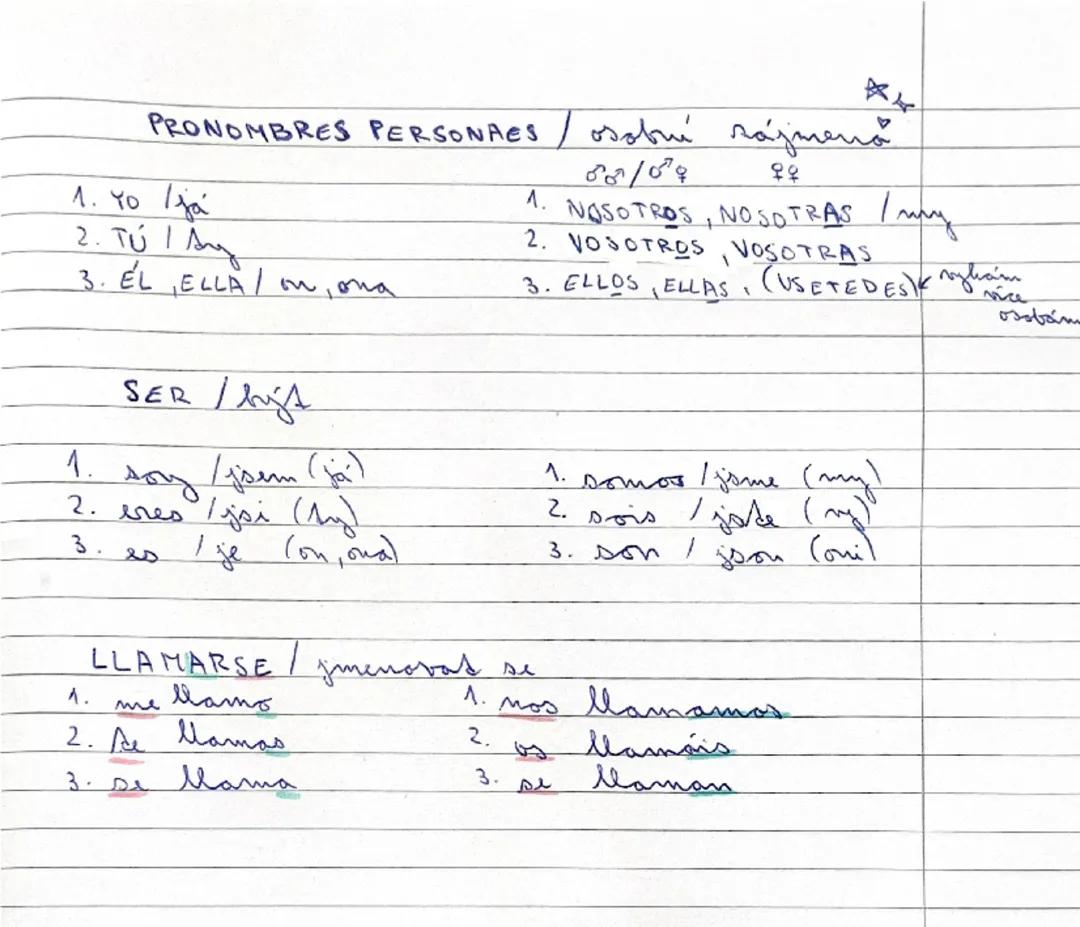 PRONOMBRES PERSONAES / osobní zájmena
♂♂/♂♀ ♀♀
1. YO / já
2. TÚ / ty
3. ÉL, ELLA / on, ona
1. NOSOTROS, NOSOTRAS / my
2. VOSOTROS, VOSOTRAS
3. ELLOS, ELLAS, (USETEDES) vykám
více
osobám
SER / být
1. soy / jsem (já)
2. eres / jsi (ty)
3. es / je (on, ona)
1. somos / jsme (my)
2. sois / jste (vy)
3. son / jsou (oni)
LLAMARSE / jmenovat se
1. me llamo
2. te llamas
3. se llama
1. nos llamamos
2. os llamáis
3. se llaman